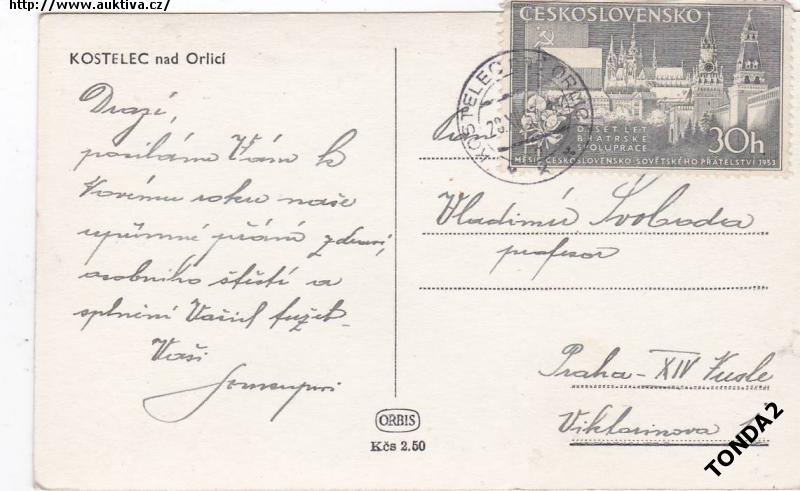 http://www.auktiva.cz/
KOSTELEC nad Orlicí
Drazí,
posíláme Vám k
Novému roku naše
upřímné přání zdraví,
osobního štěstí a
splnění Vašich tužeb.
Vaši
ČESKOSLOVENSKO
DESET LET
BRATRSKÉ
SPOLUPRÁCE
30h
MĚSÍC ČESKOSLOVENSKO-SOVĚTSKÉHO PŘÁTELSTVÍ 1953
KOSTELEC NAD ORLICÍ
Vladimír Svoboda
profesor
Praha-XIV Nusle
Viktorinova
ORBIS
Kčs 2.50
TONDA2